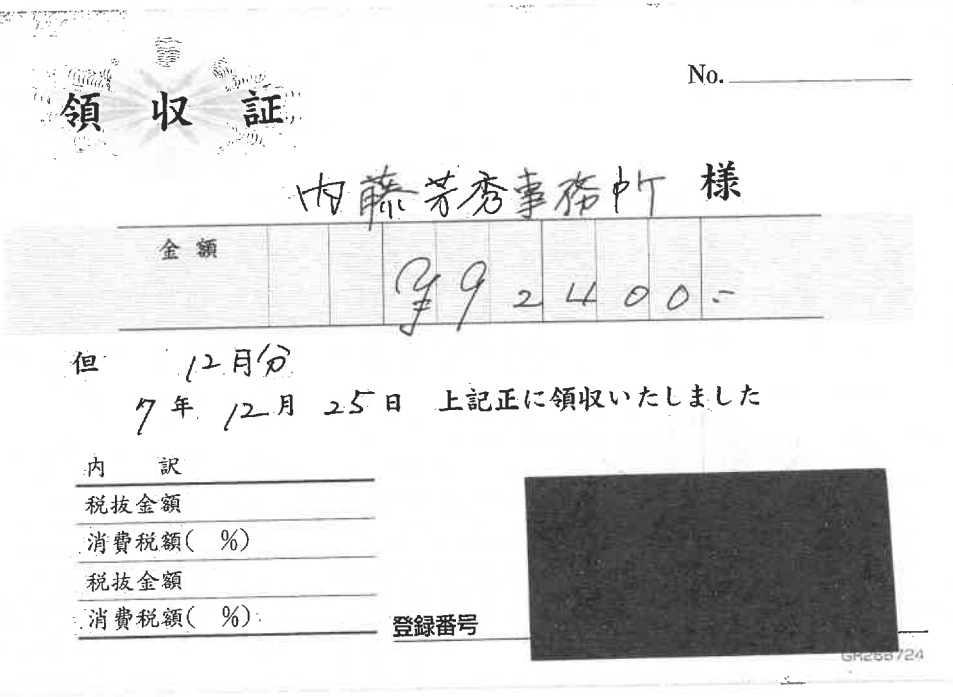 No.
領収証
内藤芳秀事務所 様
金額 ¥92400-
但 12月分
7年12月25日 上記正に領収いたしました
内訳
税抜金額
消費税額( %)
税抜金額
消費税額( %)
登録番号